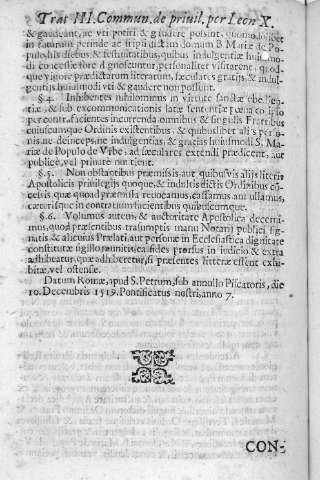 Trat III. Commun. de priuil. per Leon X.
& gaudeant, ac vti potiri & gaudere possint, quomodolibet
in futurum perinde ac si ipsi dictam domum B Mariæ de Po-
pulo, his diebus, & festiuitatibus, quibus indulgentiæ huiusmo-
di concessæ fore dignoscuntur, personaliter visitarent; quod-
que vigore prædictarum literarum, facultatis gratijs, & indul-
gentijs huiusmodi vti & gaudere non possunt.
§. 4. Inhibentes nihilominus in virtute sanctæ obedien-
tiæ, & sub excommunicationis latæ sententiæ pœna eo ipso
per contrafacientes incurrenda omnibus & singulis Fratribus
cuiuscumque Ordinis existentibus, & quibuslibet alijs perso-
nis ne deinceps, ne indulgentias, & gratias huiusmodi S. Ma-
riæ de Populo de Vrbe, ad sæculares extendi prædicent, aut
publicè, vel priuatè nuntient.
§. 5. Non obstantibus præmissis, aut quibusvis alijs literis
Apostolicis priuilegijs quoque, & indultis dictis Ordinibus con-
cessis, quæ quoad præmissa reuocamus, cassamus, annullamus,
cæterisque in contrarium facientibus quibuscumque.
§. 6. Volumus autem, & auctoritate Apostolica decerni-
mus, quod præsentibus trasumptis manu Notarij publici sig-
natis, & alicuius Prælati, aut personæ in Ecclesiastica dignitate
constitutæ sigillo munitis, ea fides prorsus in iudicio & extra
adhibeatur, quæ adhiberetur, si præsentes litteræ essent exhi-
bitæ, vel ostensæ.
Datum Romæ, apud S. Petrum, sub annullo Piscatoris, die
10. Decembris 1519. Pontificatus nostri anno 7.
CON-